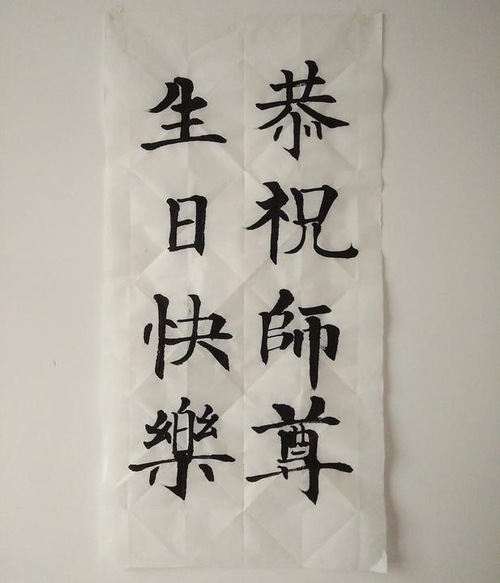 恭祝師尊
生日快樂